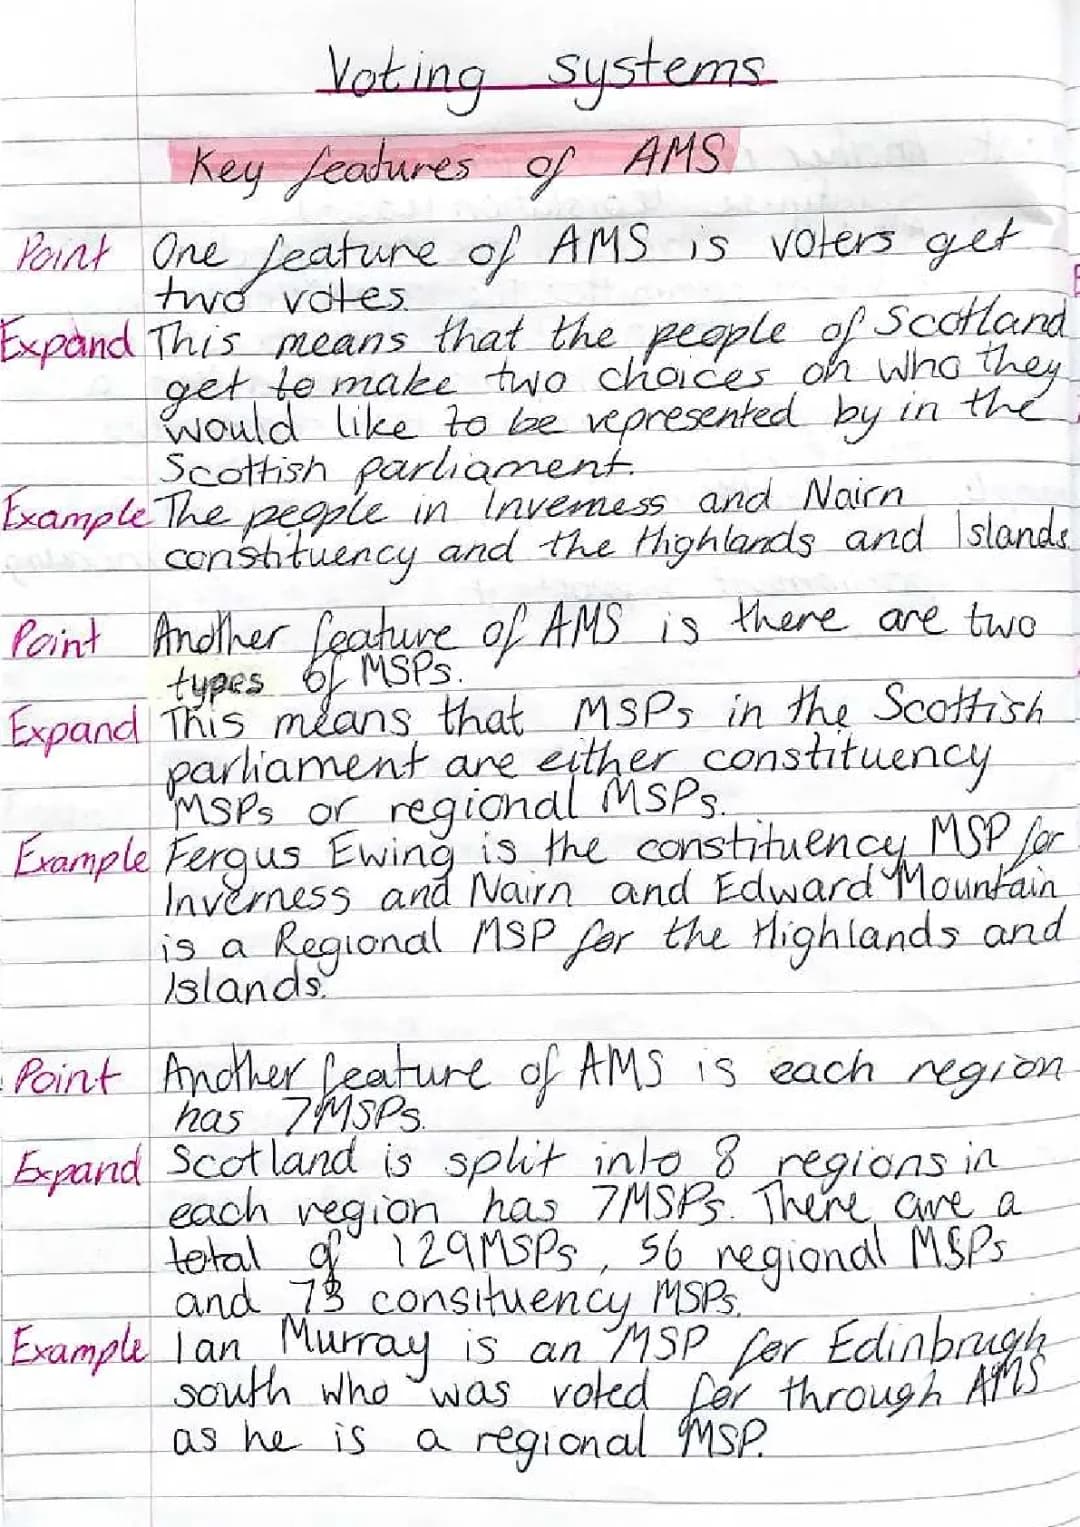 Voting systems
Key features of AMS
Point One feature of AMS is voters get
two votes.
Expand This means that the people of Scotland
get to make two choices on who they
would like to be represented by in the
Scottish parliament.
Example The people in Inverness and Nairn
constituency and the Highlands and Islands
Point Another feature of AMS is there are two
types of MSPs.
Expand This means that MSPs in the Scottish
parliament are either constituency
MSPs or regional MSPs.
Example Fergus Ewing is the constituency MSP for
Inverness and Nairn and Edward Mountain
is a Regional MSP for the Highlands and
Islands.
Point Another feature of AMS is each region
has 7MSPs.
Expand Scotland is split into 8 regions in
each region has 7MSPs. There are a
total of 129MSPs, 56 regional MSPs
and 73 consituency MSPs.
Example Ian Murray is an MSP for Edinbrugh
south who was voted for through AMS
as he is a regional MSP.